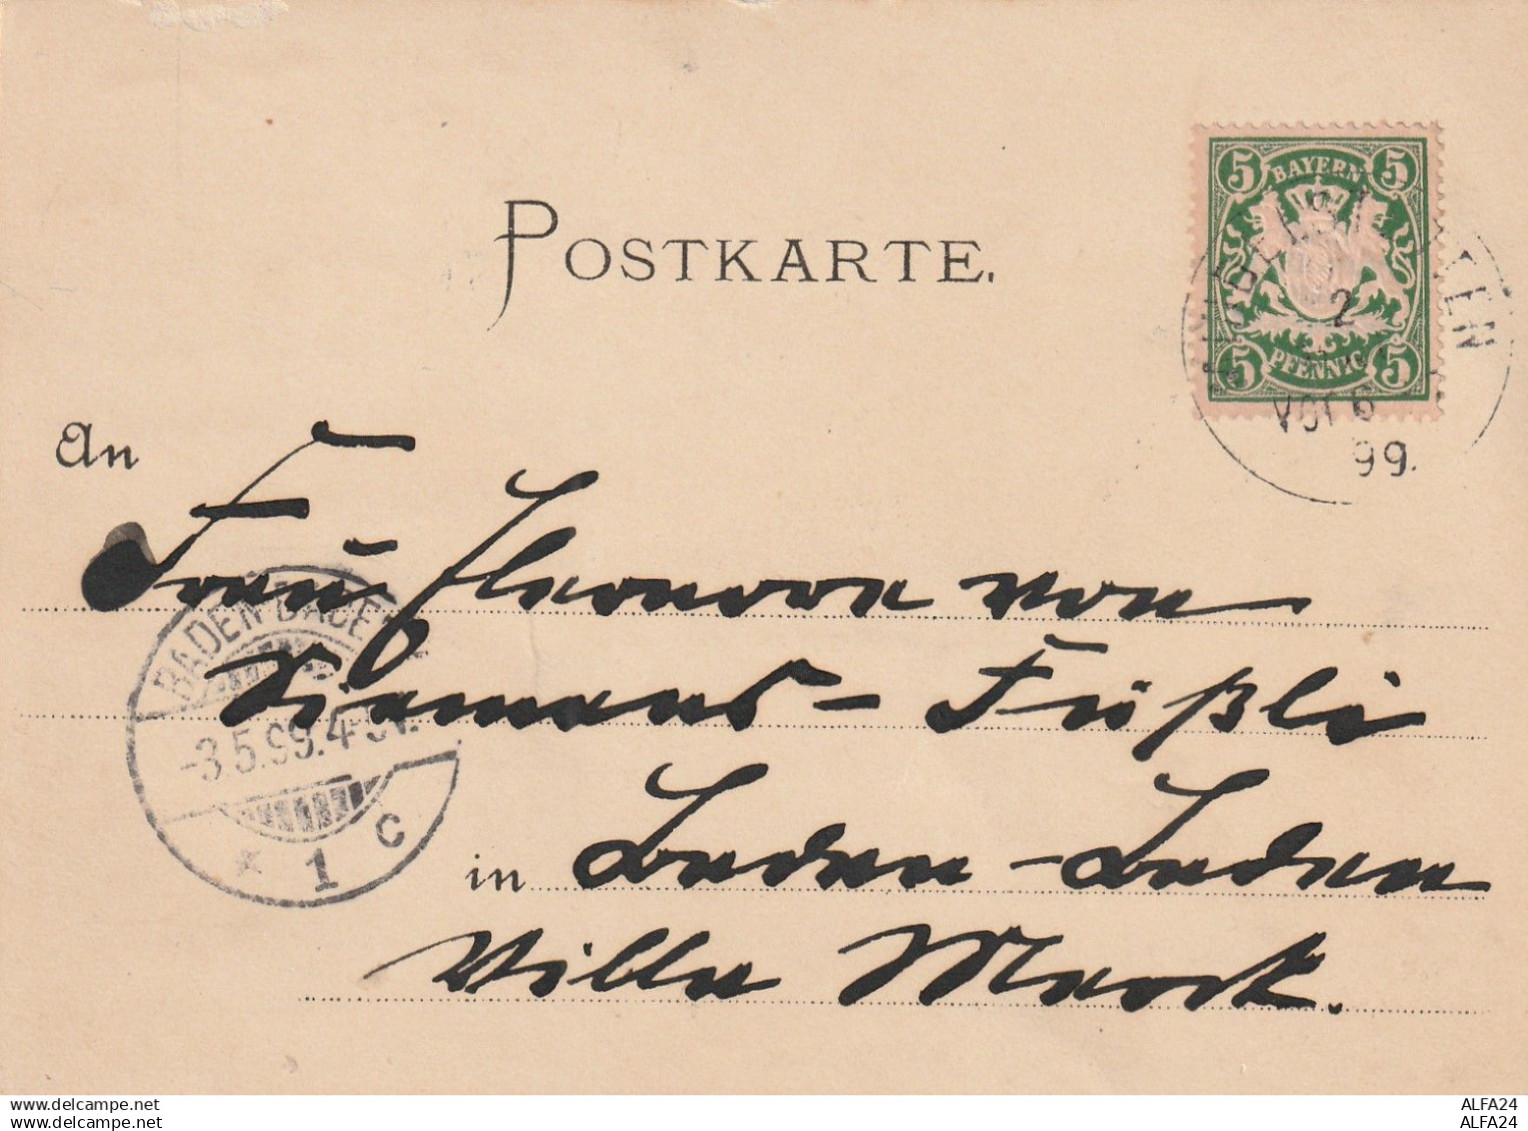 BAYERN
5 5
PFENNIG
5 5
2
Vor 6
99.
POSTKARTE.
An
Frau Eleonora von
- Füßli
in Baden-Baden
Villa
BADEN-BADEN
-3.5.99.4-5N.
* 1 c
www.delcampe.net
www.delcampe.net
ALFA24
ALFA24